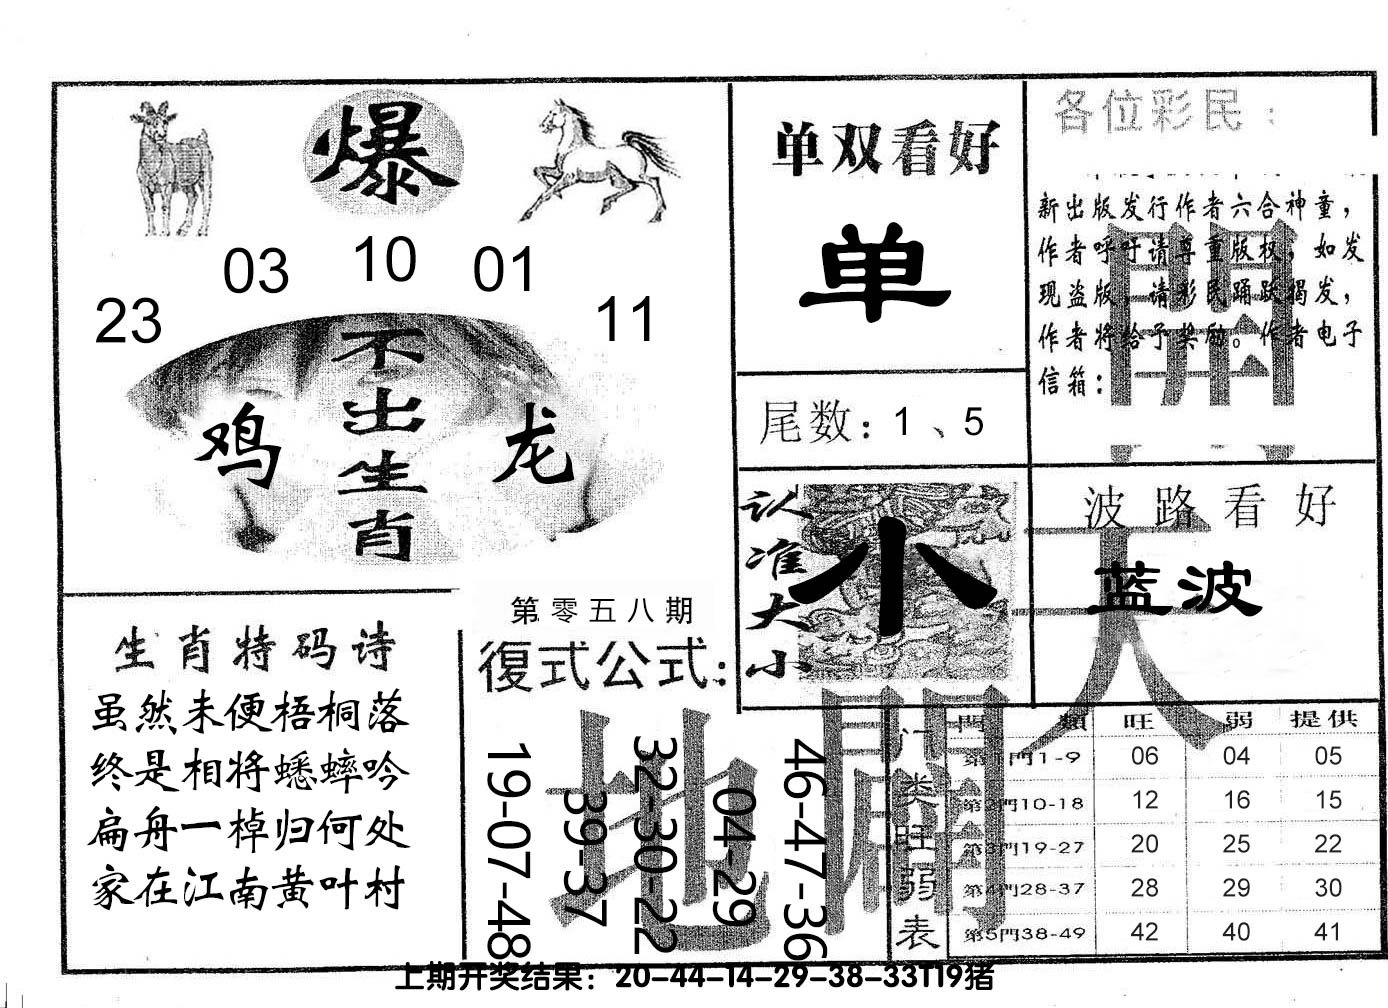 爆
23
03
10
01
11
不出生肖
鸡
龙
单双看好
单
尾数：1、5
各位彩民：
新出版发行作者六合神童，
作者呼吁请尊重版权，如发
现盗版，请彩民踊跃揭发，
作者将给予奖励。作者电子
信箱：
認准大小
小
波路看好
蓝波
天
開
生肖特码诗
虽然未便梧桐落
终是相将蟋蟀吟
扁舟一棹归何处
家在江南黄叶村
第零五八期
復式公式：
19-07-48
39-37
32-30-22
04-29
46-47-36
地
门类旺弱表
門類 旺 弱 提供
第1門1-9 06 04 05
第2門10-18 12 16 15
第3門19-27 20 25 22
第4門28-37 28 29 30
第5門38-49 42 40 41
上期开奖结果：20-44-14-29-38-33T19猪